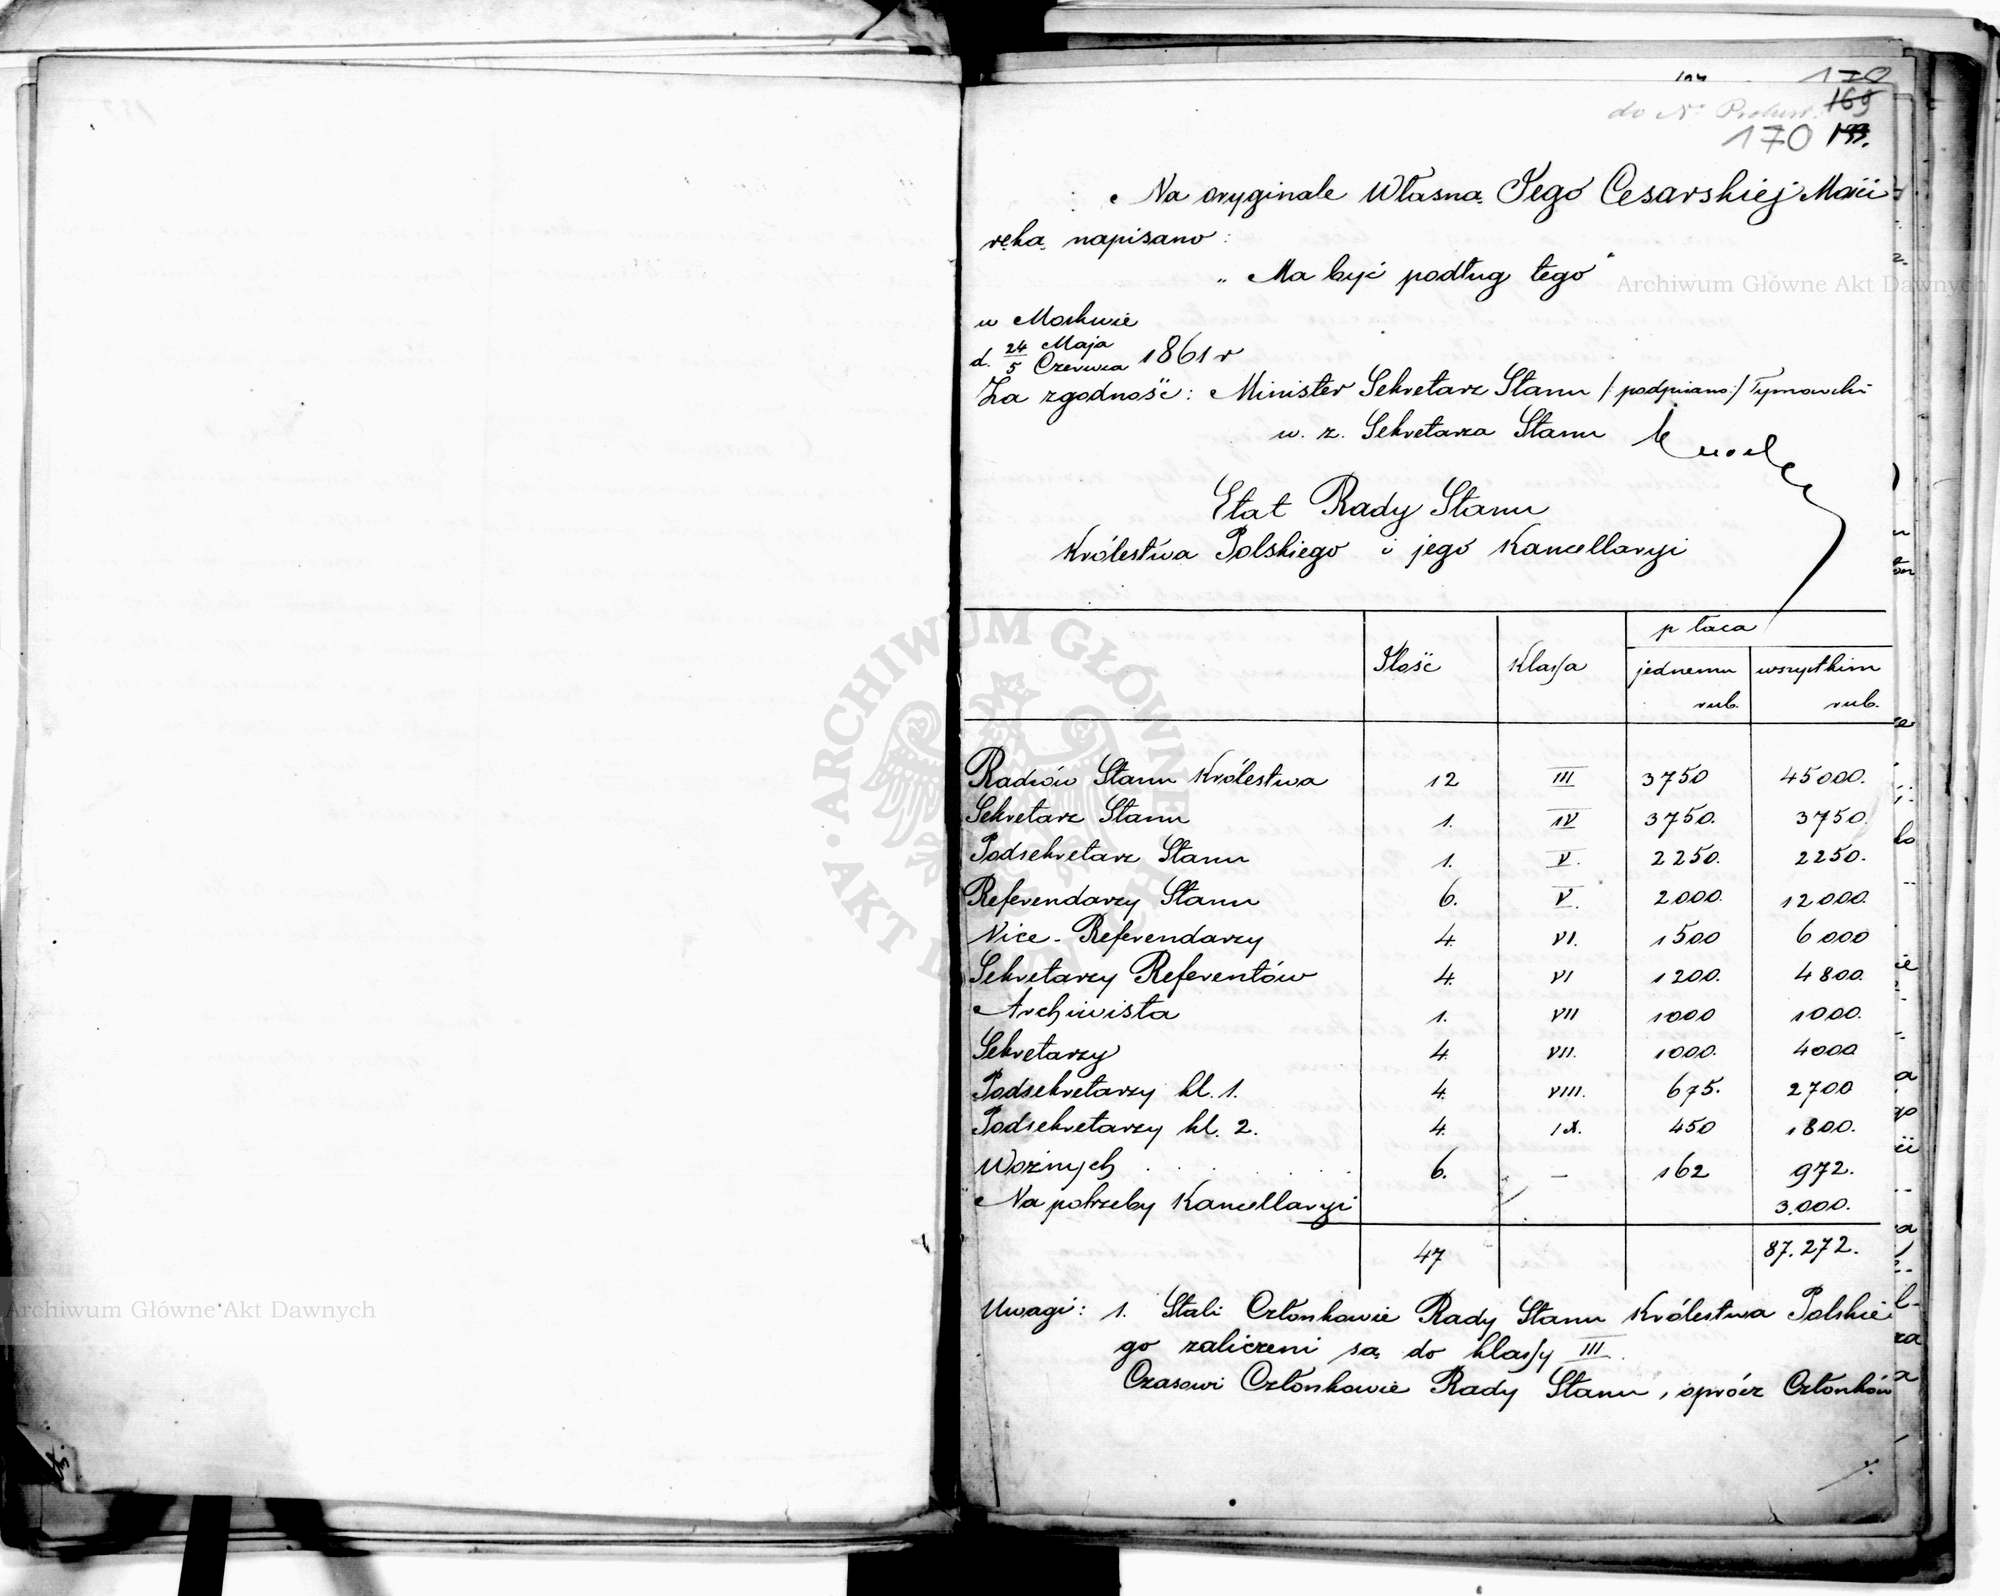 170
do No
169
170
Na oryginale Własną Jego Cesarskiej Mości
ręką napisano:
„Ma być podług tego"
w Moskwie
d. 24/5 Maja/Czerwca 1861 r
Za zgodność: Minister Sekretarz Stanu /:podpisano:/ Tymowski
w. z. Sekretarza Stanu
Etat Rady Stanu
Królestwa Polskiego i jego Kancellaryi
płaca
Ilość Klassa jednemu wszystkim
rub. rub.
Radców Stanu Królestwa 12 III 3750 45000.
Sekretarz Stanu 1. IV 3750. 3750.
Podsekretarz Stanu 1. V. 2250. 2250.
Referendarzy Stanu 6. V. 2000. 12000.
Vice-Referendarzy 4. VI. 1500 6000
Sekretarzy Referentów 4. VI 1200. 4800.
Archiwista 1. VII 1000 1000.
Sekretarzy 4. VII. 1000. 4000
Podsekretarzy kl. 1. 4. VIII. 675. 2700
Podsekretarzy kl. 2. 4. IX. 450 1800.
Woźnych . . . . . . 6. — 162 972.
Na potrzeby Kancellaryi 3.000.
47 87.272.
Uwagi: 1. Stali Członkowie Rady Stanu Królestwa Polskie
go zaliczeni są do klassy III.
Czasowi Członkowie Rady Stanu, oprócz Członków
Archiwum Główne Akt Dawnych
Archiwum Główne Akt Dawnych
ARCHIWUM GŁÓWNE AKT DAWNYCH